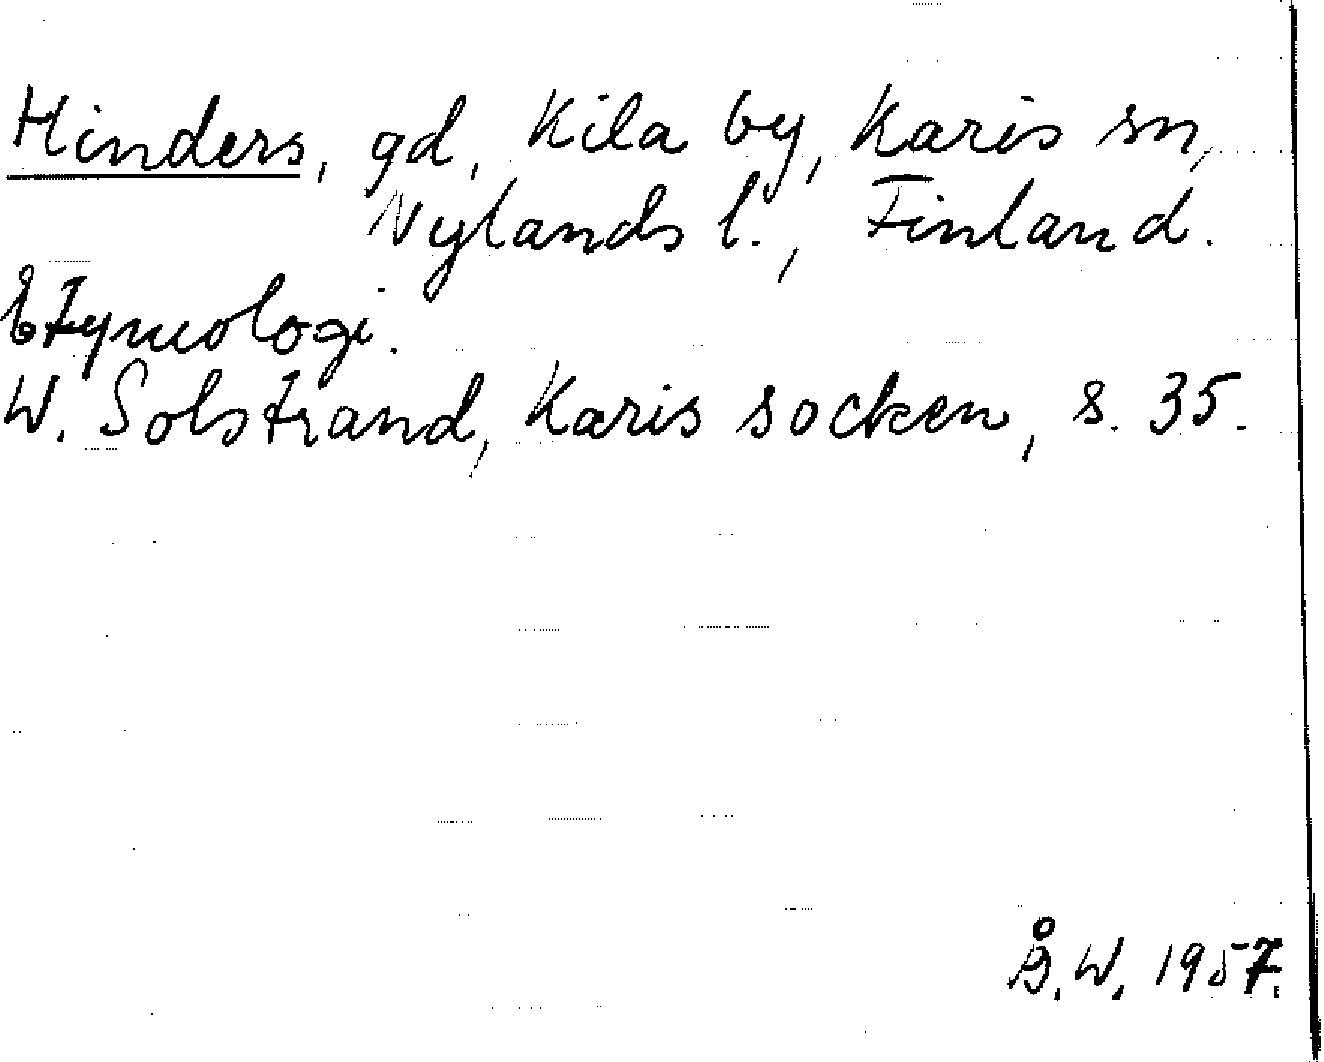 Hinders, gd, Kila by, Karis sn,
Nylands l., Finland.
Etymologi.
W. Solstrand, Karis socken, s. 35.
Å. W. 1957.